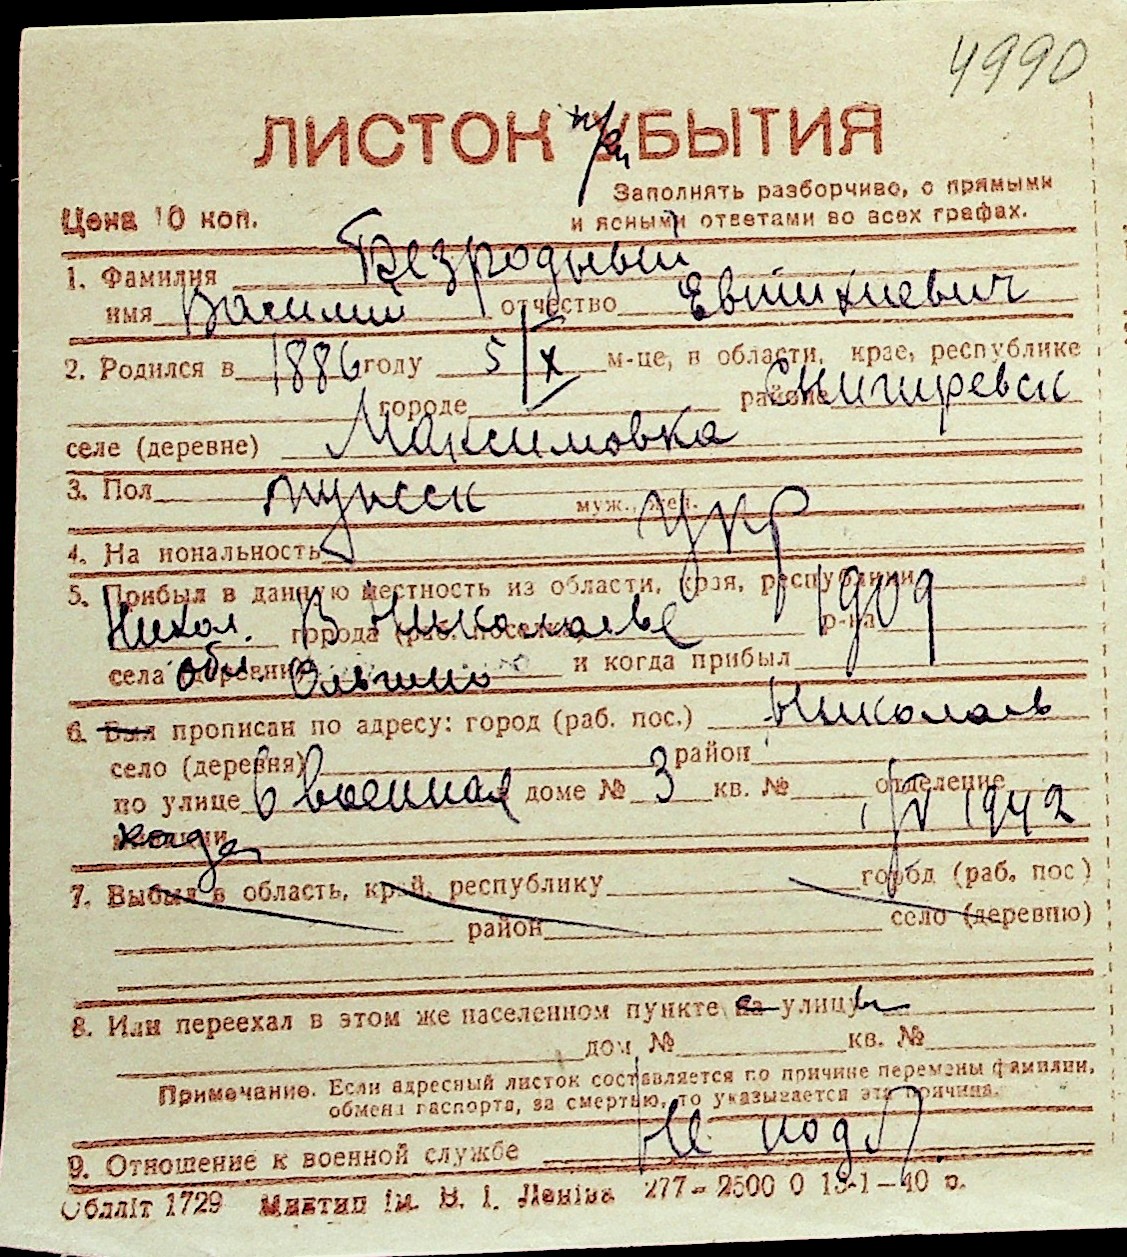 4990
ЛИСТОК УБЫТИЯ
Заполнять разборчиво, с прямыми
Цена 10 коп. и ясными ответами во всех графах.
1. Фамилия Безродный
имя Василий отчество Евтихиевич
2. Родился в 1886 году 5/X м-це, в области, крае, республике
городе районе Снигиревск
селе (деревне) Максимовка
3. Пол мужск муж., жен.
4. Национальность укр
5. Прибыл в данную местность из области, края, республики 1909
Никол. города (раб. поселка) В Николаеве р-на
села (деревни) обл. и когда прибыл
6. Был прописан по адресу: город (раб. пос.) Николаев
село (деревня) район
по улице 6 военная доме № 3 кв. № отделение
когда 1/IV 1942
7. Выбыл в область, край, республику город (раб. пос)
район село (деревню)
8. Или переехал в этом же населенном пункте на улицу
дом № кв. №
Примечание. Если адресный листок составляется по причине перемены фамилии,
обмена паспорта, за смертью, то указывается эта причина.
9. Отношение к военной службе Не подл.
Обліт 1729 Миктип ім. В. І. Леніна 277-2500 0 15-1-40 р.